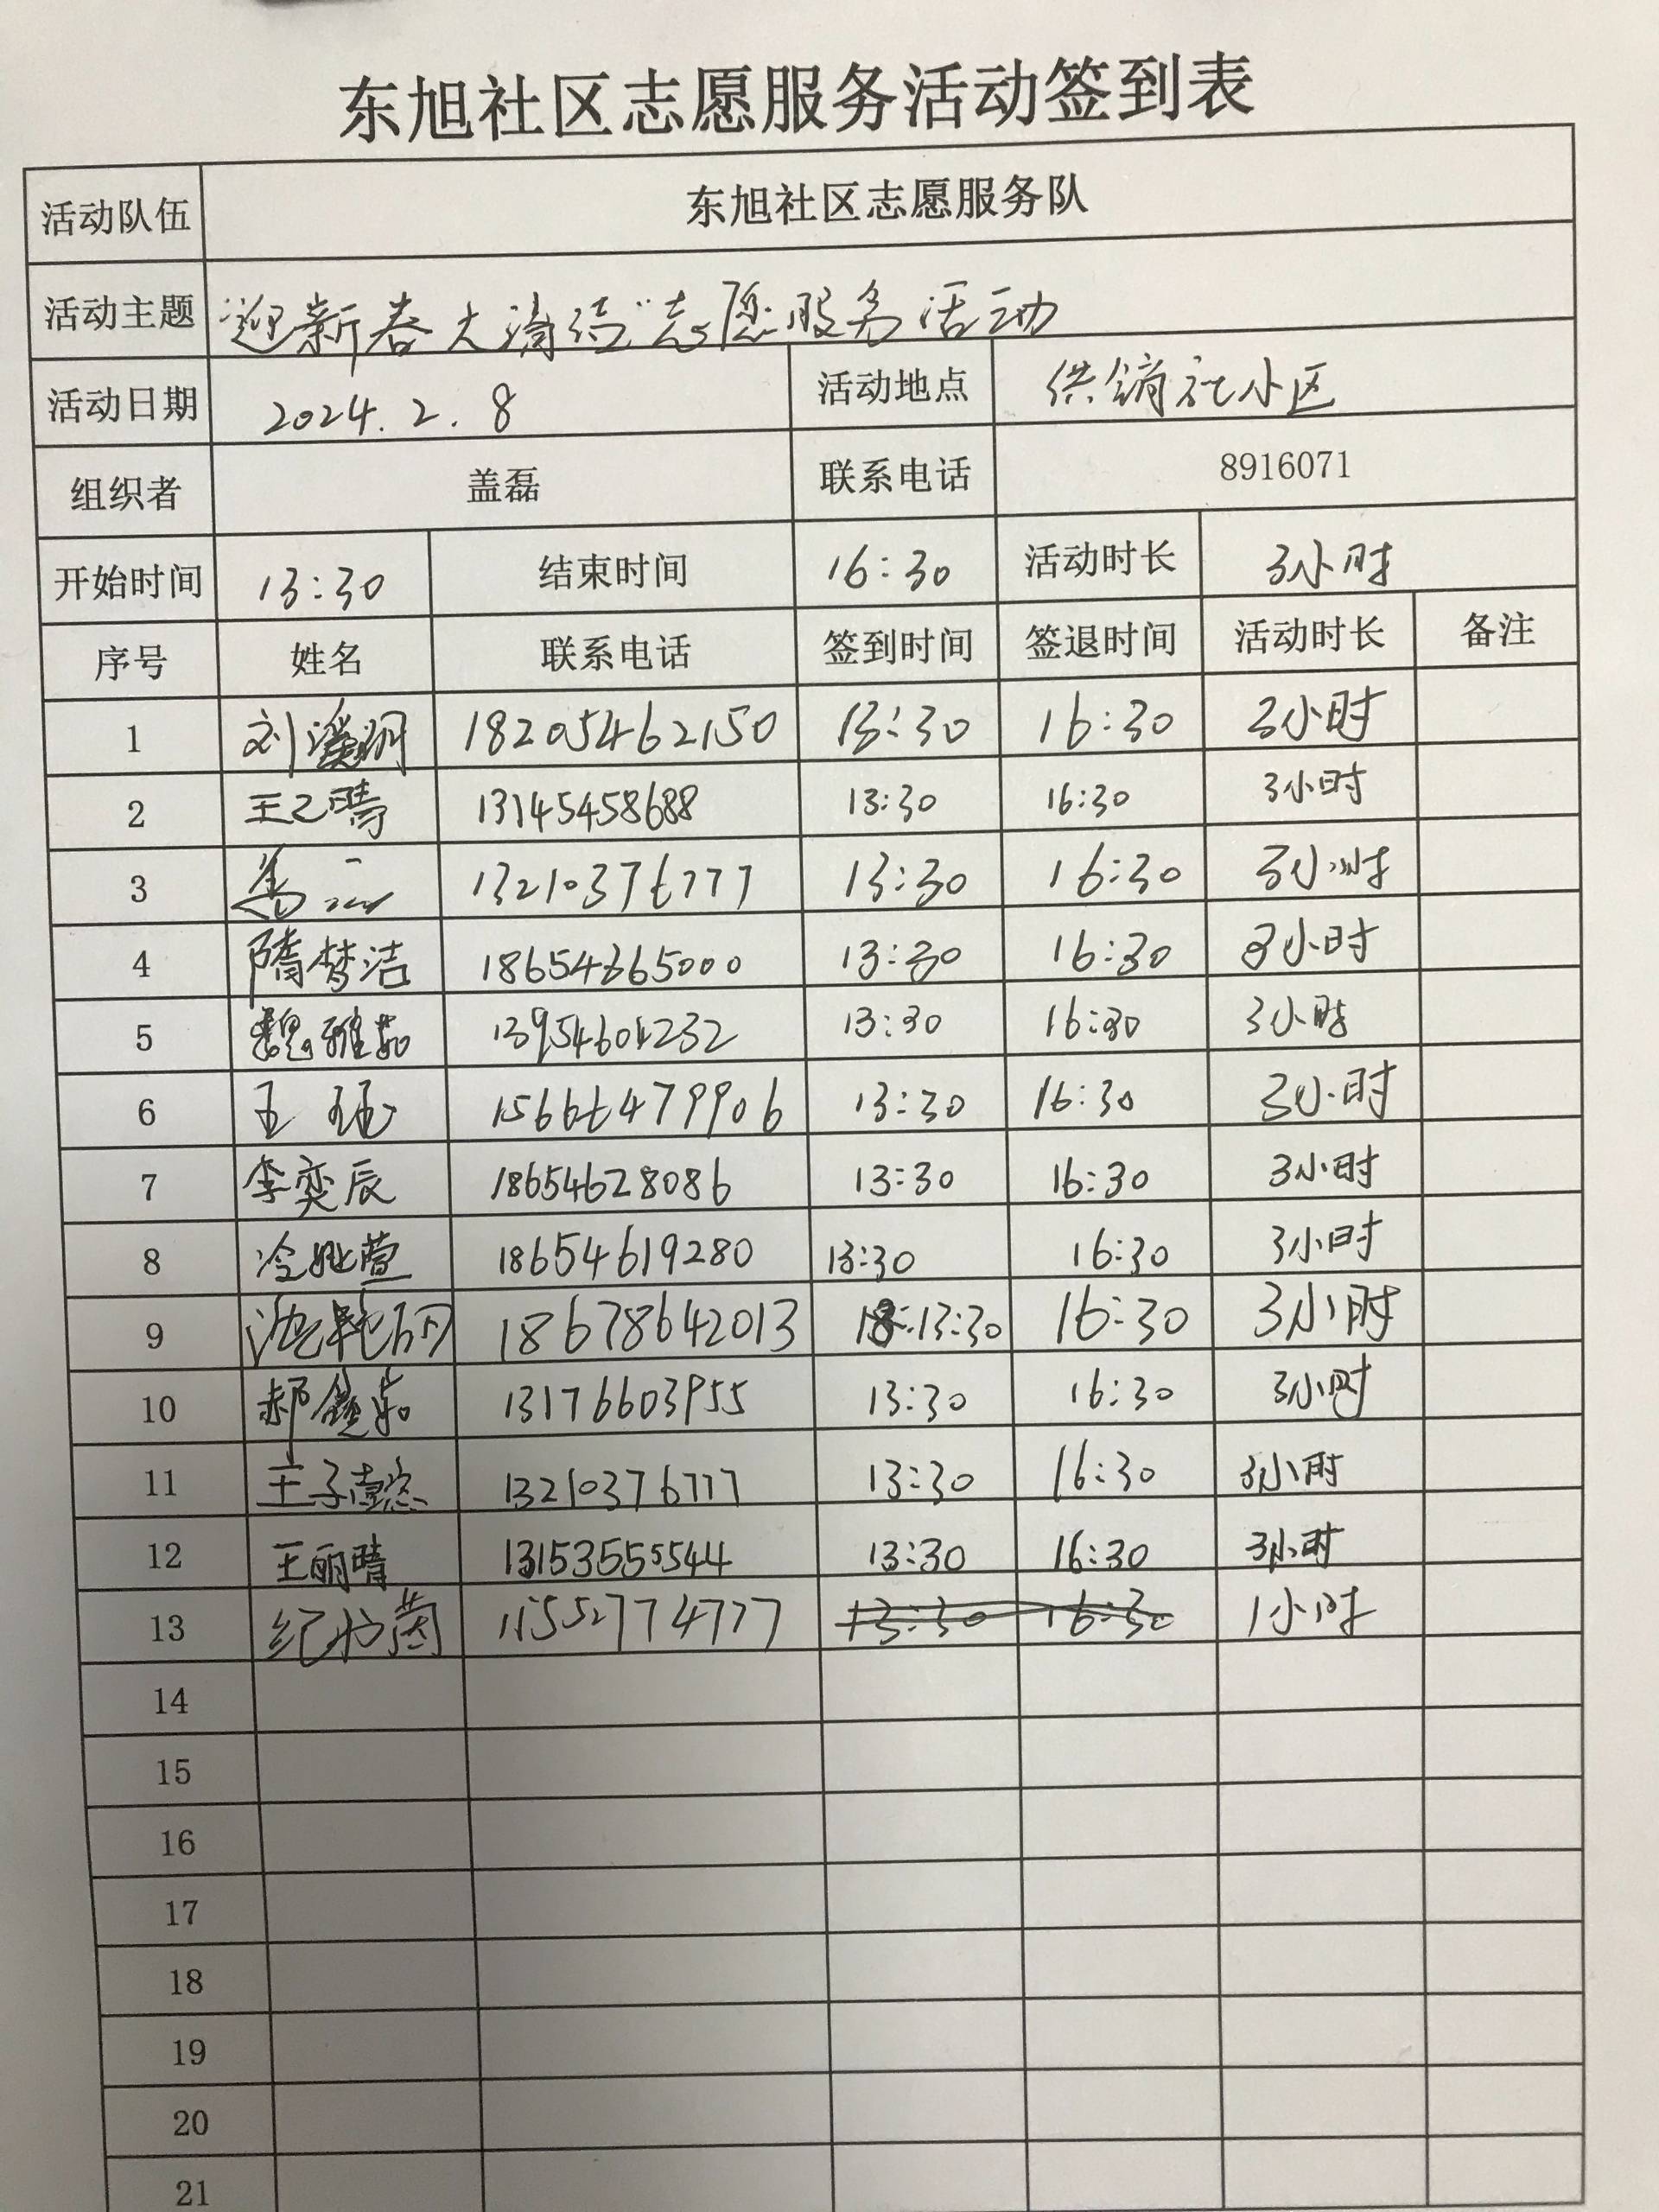 东旭社区志愿服务活动签到表
活动队伍 东旭社区志愿服务队
活动主题 "迎新春大清洁"志愿服务活动
活动日期 2024.2.8 活动地点 供销社小区
组织者 盖磊 联系电话 8916071
开始时间 13:30 结束时间 16:30 活动时长 3小时
序号 姓名 联系电话 签到时间 签退时间 活动时长 备注
1 刘 18205462150 13:30 16:30 3小时
2 王乙晴 13145458688 13:30 16:30 3小时
3 13210376777 13:30 16:30 3小时
4 隋梦洁 18654665000 13:30 16:30 3小时
5 魏雅茹 13:30 16:30 3小时
6 王 15666479906 13:30 16:30 3小时
7 李奕辰 18654628086 13:30 16:30 3小时
8 冷 萱 18654619280 13:30 16:30 3小时
9 18678642013 13:30 16:30 3小时
10 郝鑫茹 13176603955 13:30 16:30 3小时
11 王子懿 13210376777 13:30 16:30 3小时
12 王丽晴 13153555544 13:30 16:30 3小时
13 纪 茵 15552774777 13:30 16:30 1小时
14
15
16
17
18
19
20
21